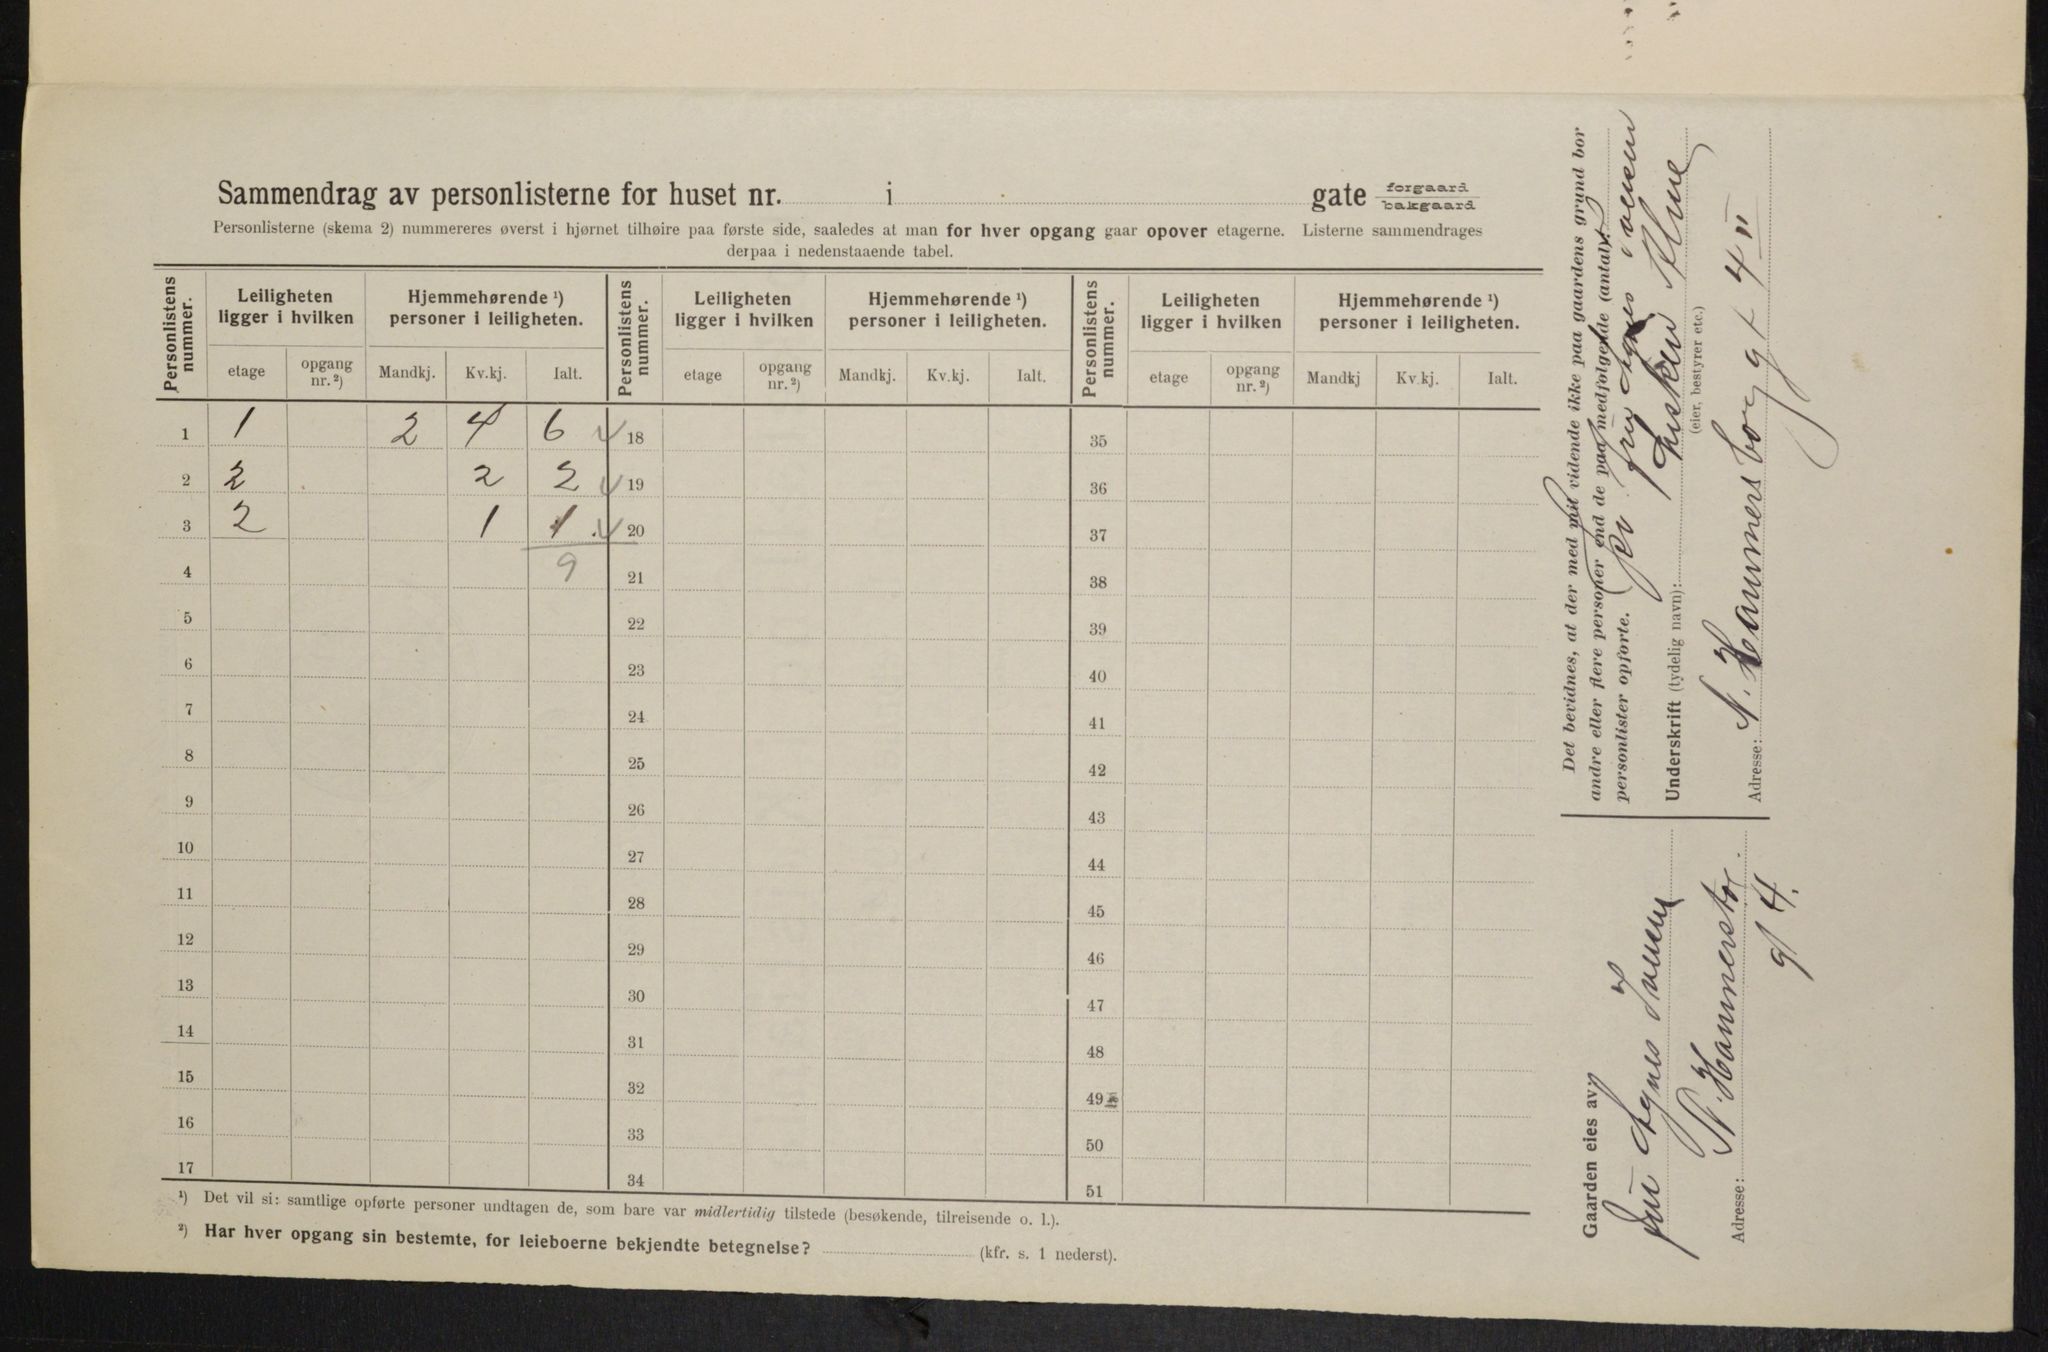 Sammendrag av personlisterne for huset nr. i gate forgaard
bakgaard
Personlisterne (skema 2) nummereres øverst i hjørnet tilhøire paa første side, saaledes at man for hver opgang gaar opover etagerne. Listerne sammendrages
derpaa i nedenstaaende tabel.
Personlistens nummer. Leiligheten ligger i hvilken Hjemmehørende ¹) personer i leiligheten. Personlistens nummer. Leiligheten ligger i hvilken Hjemmehørende ¹) personer i leiligheten. Personlistens nummer. Leiligheten ligger i hvilken Hjemmehørende ¹) personer i leiligheten.
etage opgang nr. ²) Mandkj. Kv.kj. Ialt. etage opgang nr. ²) Mandkj. Kv.kj. Ialt. etage opgang nr. ²) Mandkj Kv.kj. Ialt.
1 1 2 4 6 18 35
2 2 2 2 19 36
3 2 1 1 20 37
4 9 21 38
5 22 39
6 23 40
7 24 41
8 25 42
9 26 43
10 27 44
11 28 45
12 29 46
13 30 47
14 31 48
15 32 49
16 33 50
17 34 51
¹) Det vil si: samtlige opførte personer undtagen de, som bare var midlertidig tilstede (besøkende, tilreisende o. l.).
²) Har hver opgang sin bestemte, for leieboerne bekjendte betegnelse? (kfr. s. 1 nederst).
Det bevidnes, at der med mit vidende ikke paa gaardens grund bor
andre eller flere personer end de paa medfølgende (antal)
personlister opførte.
fru Agnes
Underskrift (tydelig navn):
(eier, bestyrer etc.)
Adresse: N. Hammersborg gt 4 II
Gaarden eies av:
Fru Agnes
Adresse: N. Hammersbor
gt 4.